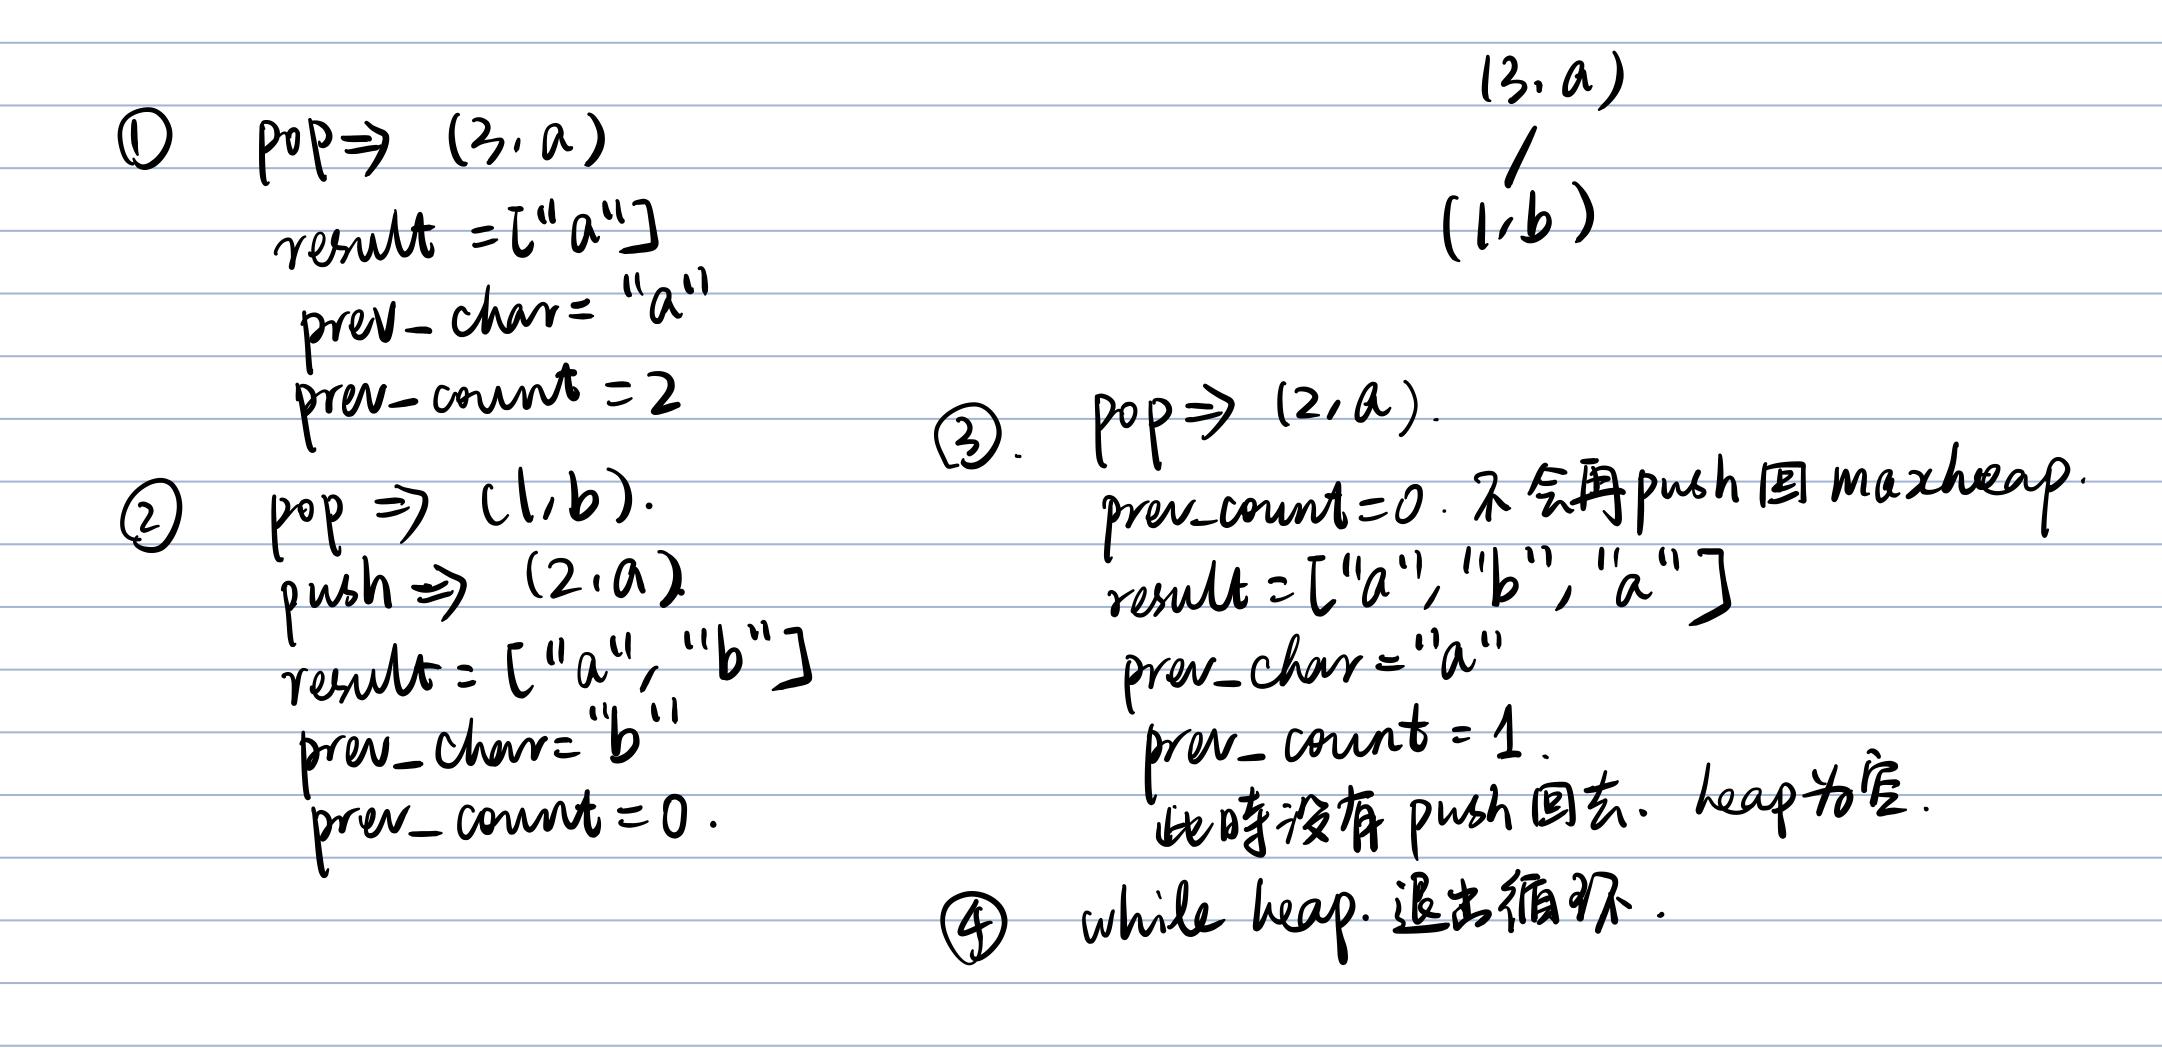 ① pop⇒ (3, a)
result = ["a"]
prev_char = "a"
prev_count = 2
② pop ⇒ (1, b).
push ⇒ (2, a)
result = ["a", "b"]
prev_char = "b"
prev_count = 0.
(3, a)
(1, b)
③. pop ⇒ (2, a).
prev_count = 0. 不会再push回maxheap.
result = ["a", "b", "a"]
prev_char = "a"
prev_count = 1.
此时没有push回去. heap为空.
④ while heap. 退出循环.